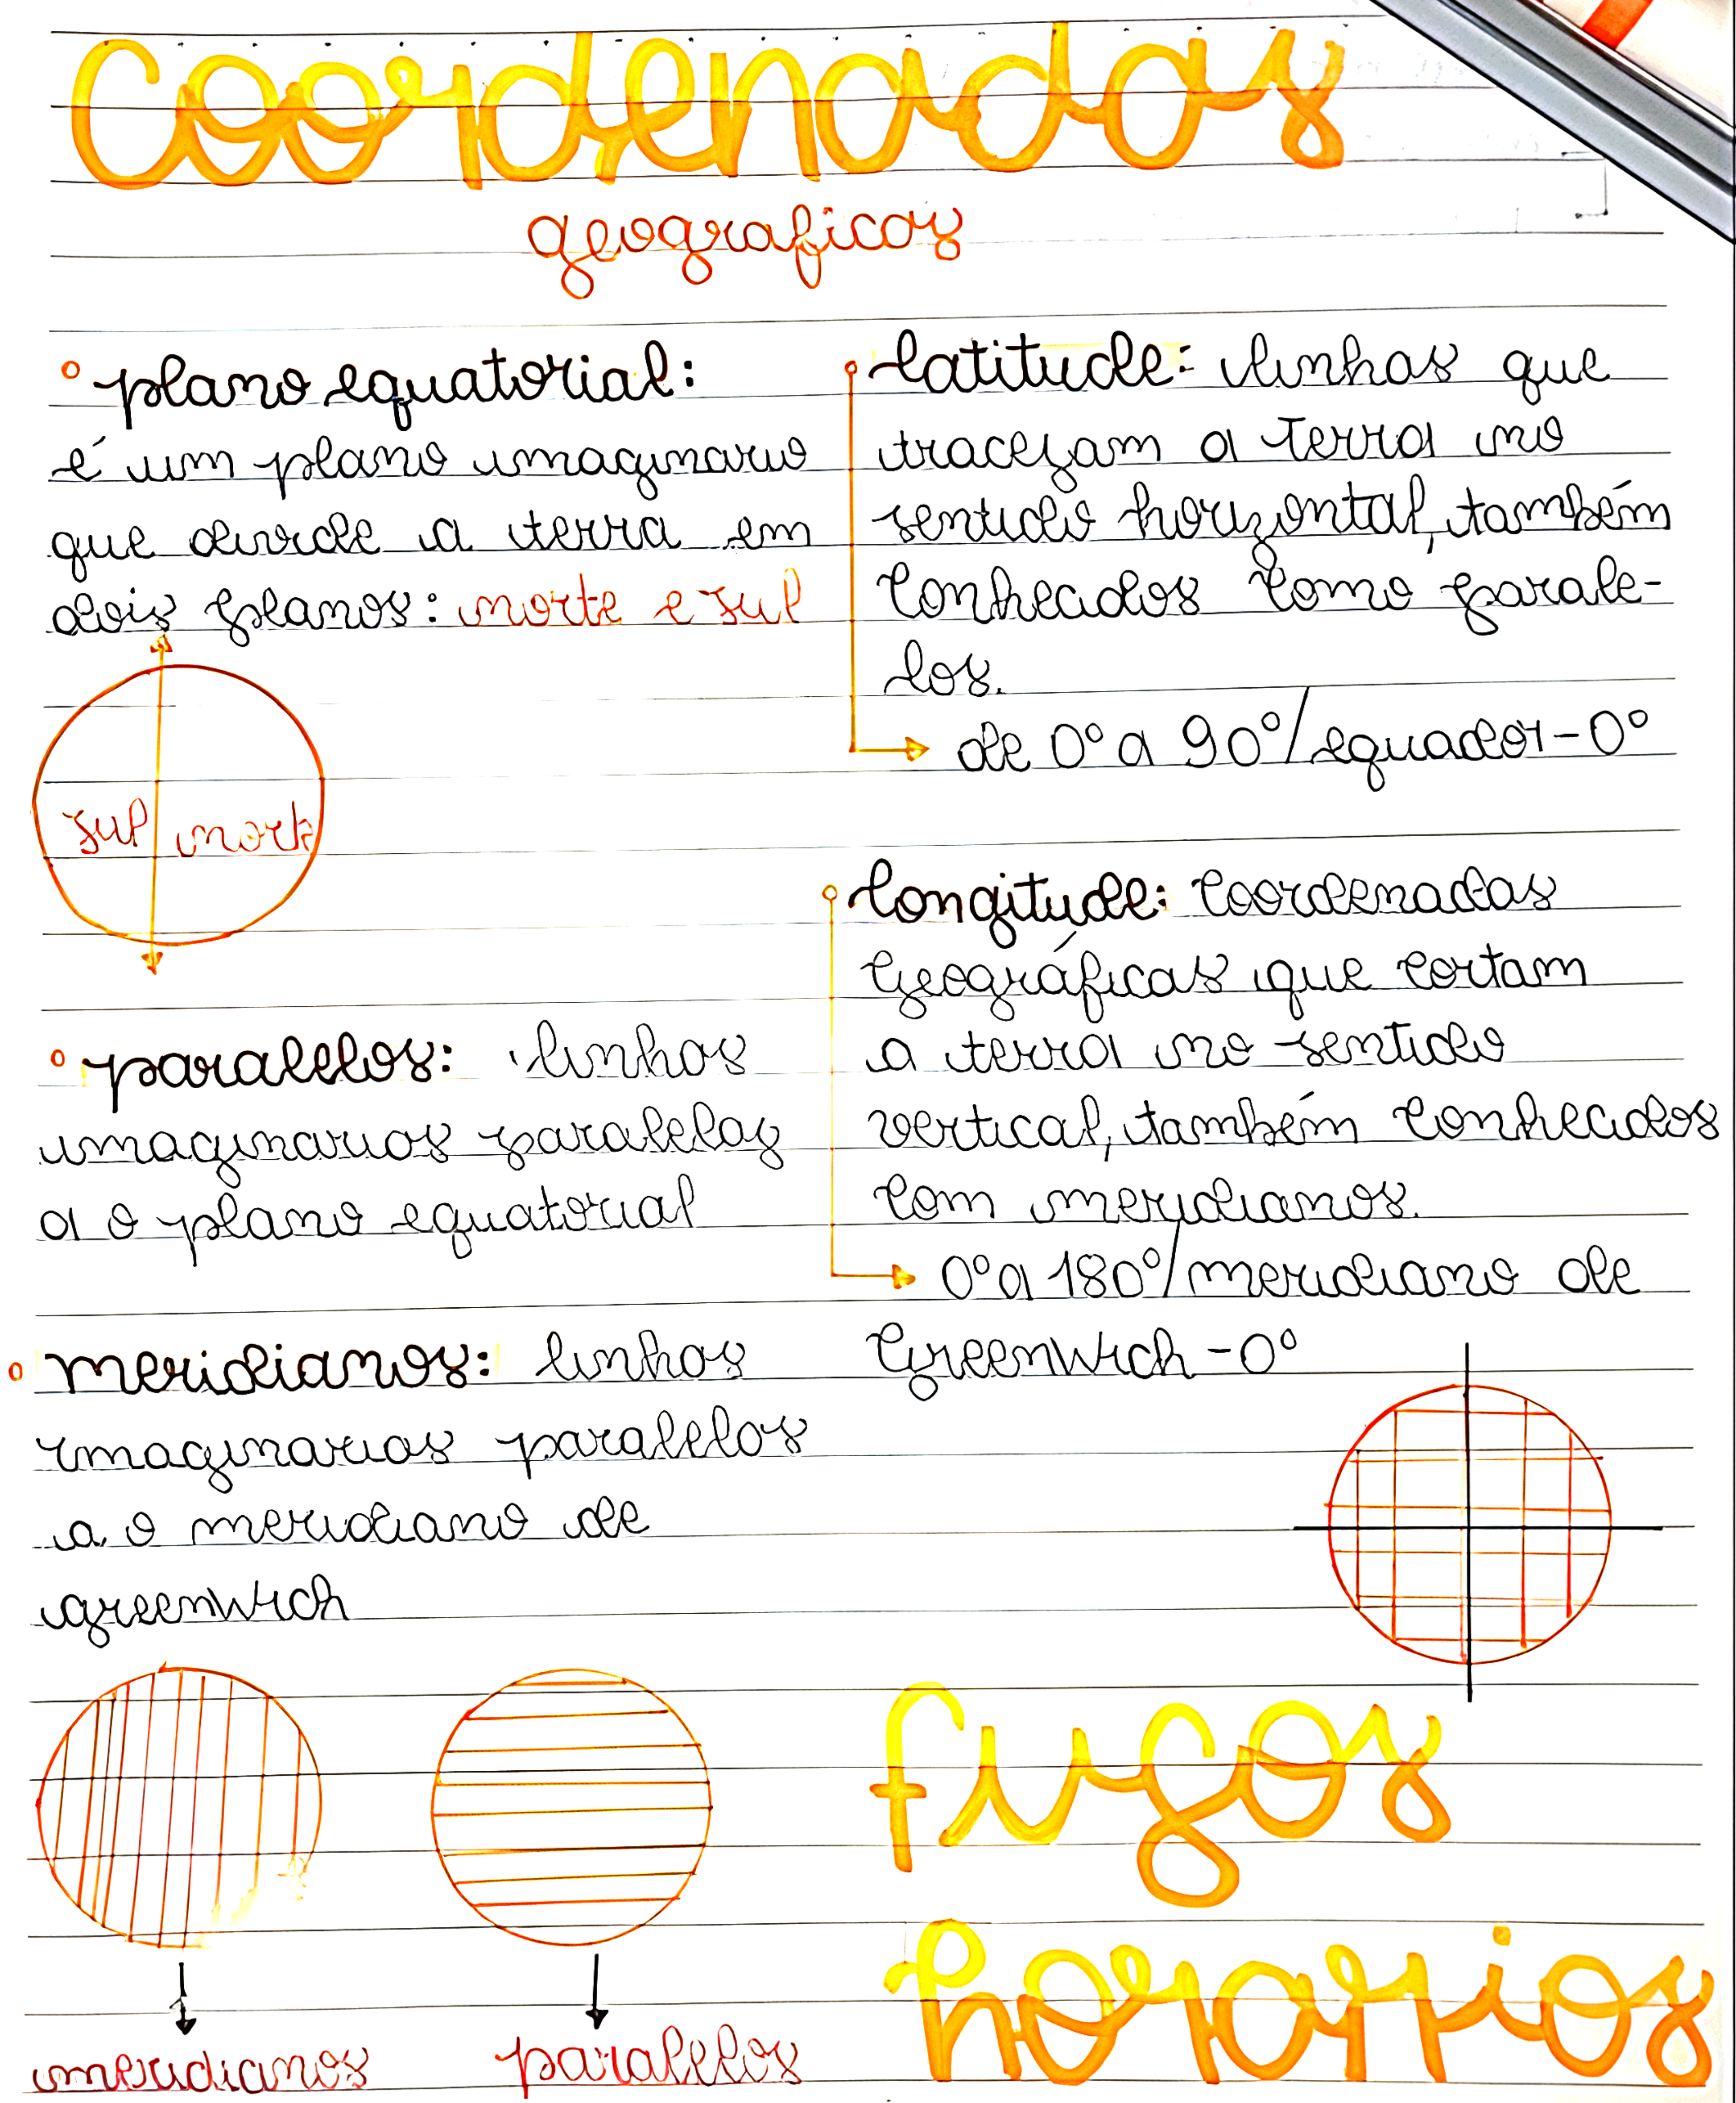 Coordenadas
geograficas
plano equatorial:
é um plano imaginario
que divide a terra em
dois planos: norte e sul
sul norte
paralelos: linhas
imaginarias paralelas
a o plano equatorial
meridianos: linhas
imaginarias paralelos
a o meridiano de
greenwich
meridianos
paralelos
latitude: linhas que
tracejam a terra no
sentido horizontal, também
conhecidos como parale-
los.
de 0° a 90°/equador-0°
longitude: coordenadas
Geográficas que cortam
a terra no sentido
vertical, também conhecidos
com meridianos.
0° a 180°/meridiano de
Greenwich-0°
fusos
horarios